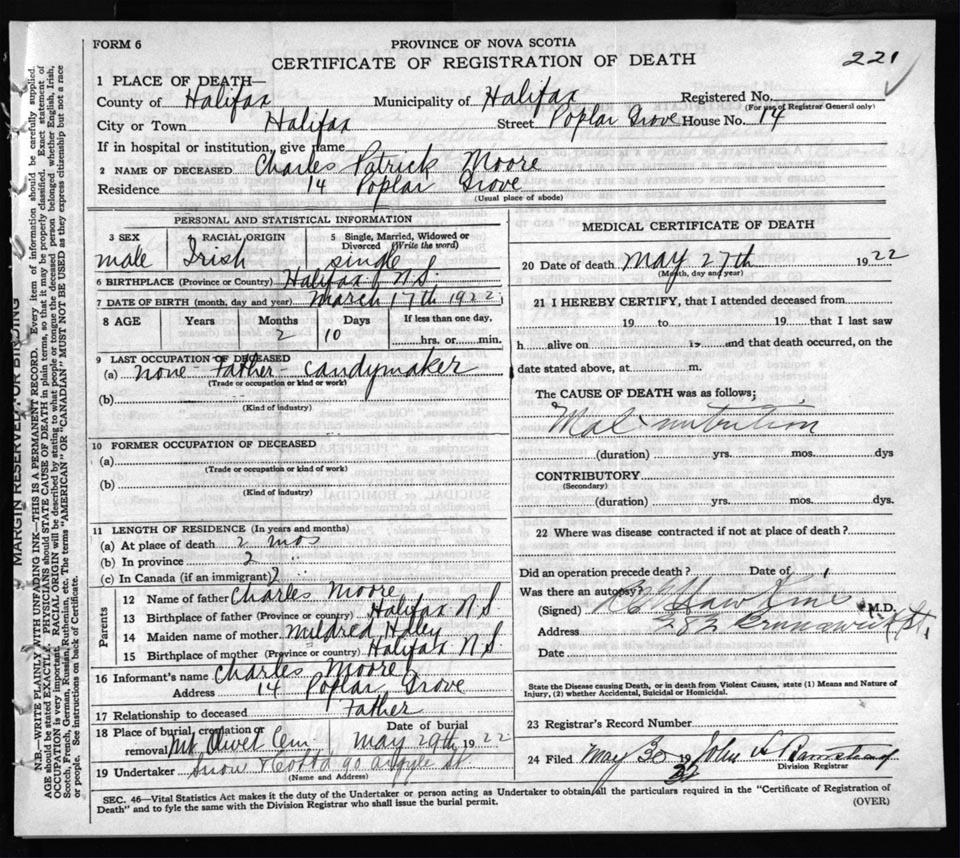 FORM 6
PROVINCE OF NOVA SCOTIA
CERTIFICATE OF REGISTRATION OF DEATH
221
1 PLACE OF DEATH—
County of Halifax Municipality of Halifax Registered No.
(For use of Registrar General only)
City or Town Halifax Street Poplar Grove House No. 14
If in hospital or institution, give name
2 NAME OF DECEASED Charles Patrick Moore
Residence 14 Poplar Grove
(Usual place of abode)
PERSONAL AND STATISTICAL INFORMATION
3 SEX RACIAL ORIGIN 5 Single, Married, Widowed or
Divorced (Write the word)
male Irish single
6 BIRTHPLACE (Province or Country) Halifax N.S.
7 DATE OF BIRTH (month, day and year) March 17th 1922
8 AGE Years Months Days If less than one day,
2 10 hrs. or min.
9 LAST OCCUPATION OF DECEASED
(a) none - Father - candymaker
(Trade or occupation or kind or work)
(b)
(Kind of industry)
10 FORMER OCCUPATION OF DECEASED
(a)
(Trade or occupation or kind of work)
(b)
(Kind of industry)
11 LENGTH OF RESIDENCE (In years and months)
(a) At place of death 2 mos
(b) In province 2 "
(c) In Canada (if an immigrant) 2
Parents
12 Name of father Charles Moore
13 Birthplace of father (Province or country) Halifax N.S
14 Maiden name of mother Mildred Haley
15 Birthplace of mother (Province or country) Halifax N.S.
16 Informant's name Charles Moore
Address 14 Poplar Grove
17 Relationship to deceased Father
18 Place of burial, cremation or Date of burial
removal Mt Olivet Cem May 29th 1922
19 Undertaker Snow 90 Argyle St
(Name and Address)
MEDICAL CERTIFICATE OF DEATH
20 Date of death May 27th 1922
(Month, day and year)
21 I HEREBY CERTIFY, that I attended deceased from
19 to 19 that I last saw
h alive on 19 and that death occurred, on the
date stated above, at m.
The CAUSE OF DEATH was as follows;
Malnutrition
(duration) yrs. mos. dys
CONTRIBUTORY
(Secondary)
(duration) yrs. mos. dys.
22 Where was disease contracted if not at place of death?
Did an operation precede death? Date of
Was there an autopsy?
(Signed) M.D.
Address 282 Brunswick St.
Date
State the Disease causing Death, or in death from Violent Causes, state (1) Means and Nature of
Injury, (2) whether Accidental, Suicidal or Homicidal.
23 Registrar's Record Number
24 Filed May 30 19 22 John A
Division Registrar
SEC. 46—Vital Statistics Act makes it the duty of the Undertaker or person acting as Undertaker to obtain all the particulars required in the "Certificate of Registration of
Death" and to fyle the same with the Division Registrar who shall issue the burial permit.
(OVER)
MARGIN RESERVED FOR BINDING
N.B.—WRITE PLAINLY WITH UNFADING INK—THIS IS A PERMANENT RECORD. Every item of information should be carefully supplied.
AGE should be stated EXACTLY. PHYSICIANS should STATE CAUSE OF DEATH in plain terms, so that it may be properly classified. Exact statement of
OCCUPATION is very important. RACIAL ORIGIN will be described by stating to what people or tongue the deceased person belonged whether English, Irish,
Scotch, French, German, Russian, Ruthenian, etc. The terms "AMERICAN" OR "CANADIAN" MUST NOT BE USED as they express citizenship but not a race
or people. See instructions on back of Certificate.